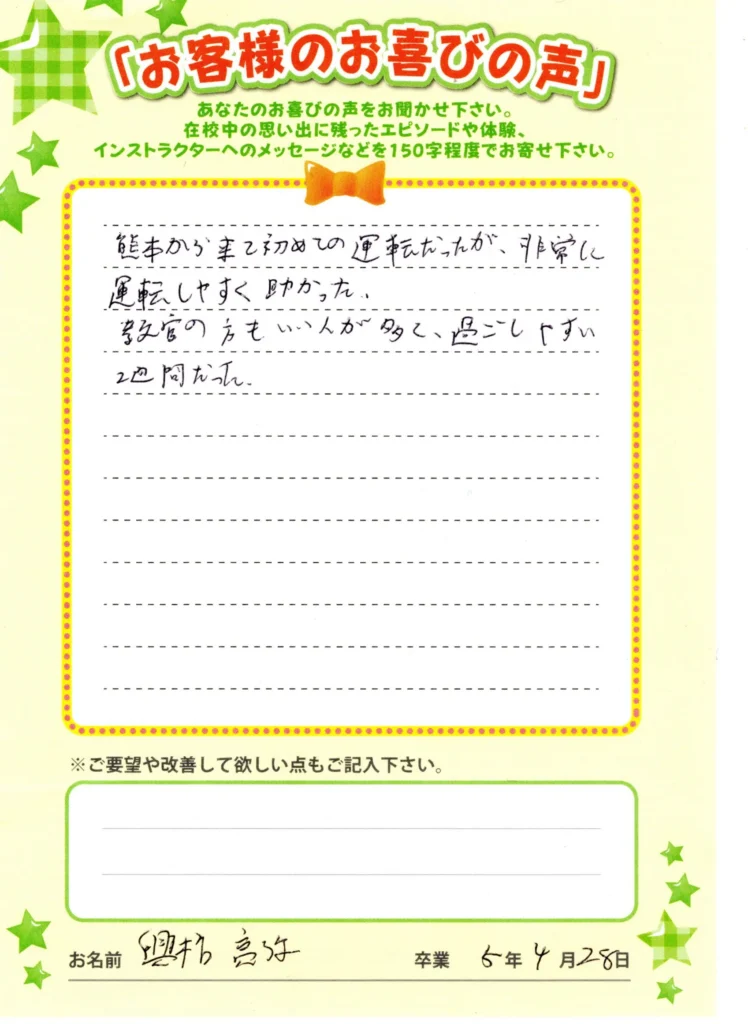 「お客様のお喜びの声」
あなたのお喜びの声をお聞かせ下さい。
在校中の思い出に残ったエピソードや体験、
インストラクターへのメッセージなどを150字程度でお寄せ下さい。
熊本から来て初めての運転だったが、非常に
運転しやすく助かった。
教官の方もいい人が多く、過ごしやすい
2週間だった。
※ご要望や改善して欲しい点もご記入下さい。
お名前 興梠 亮弥 卒業 5年4月28日